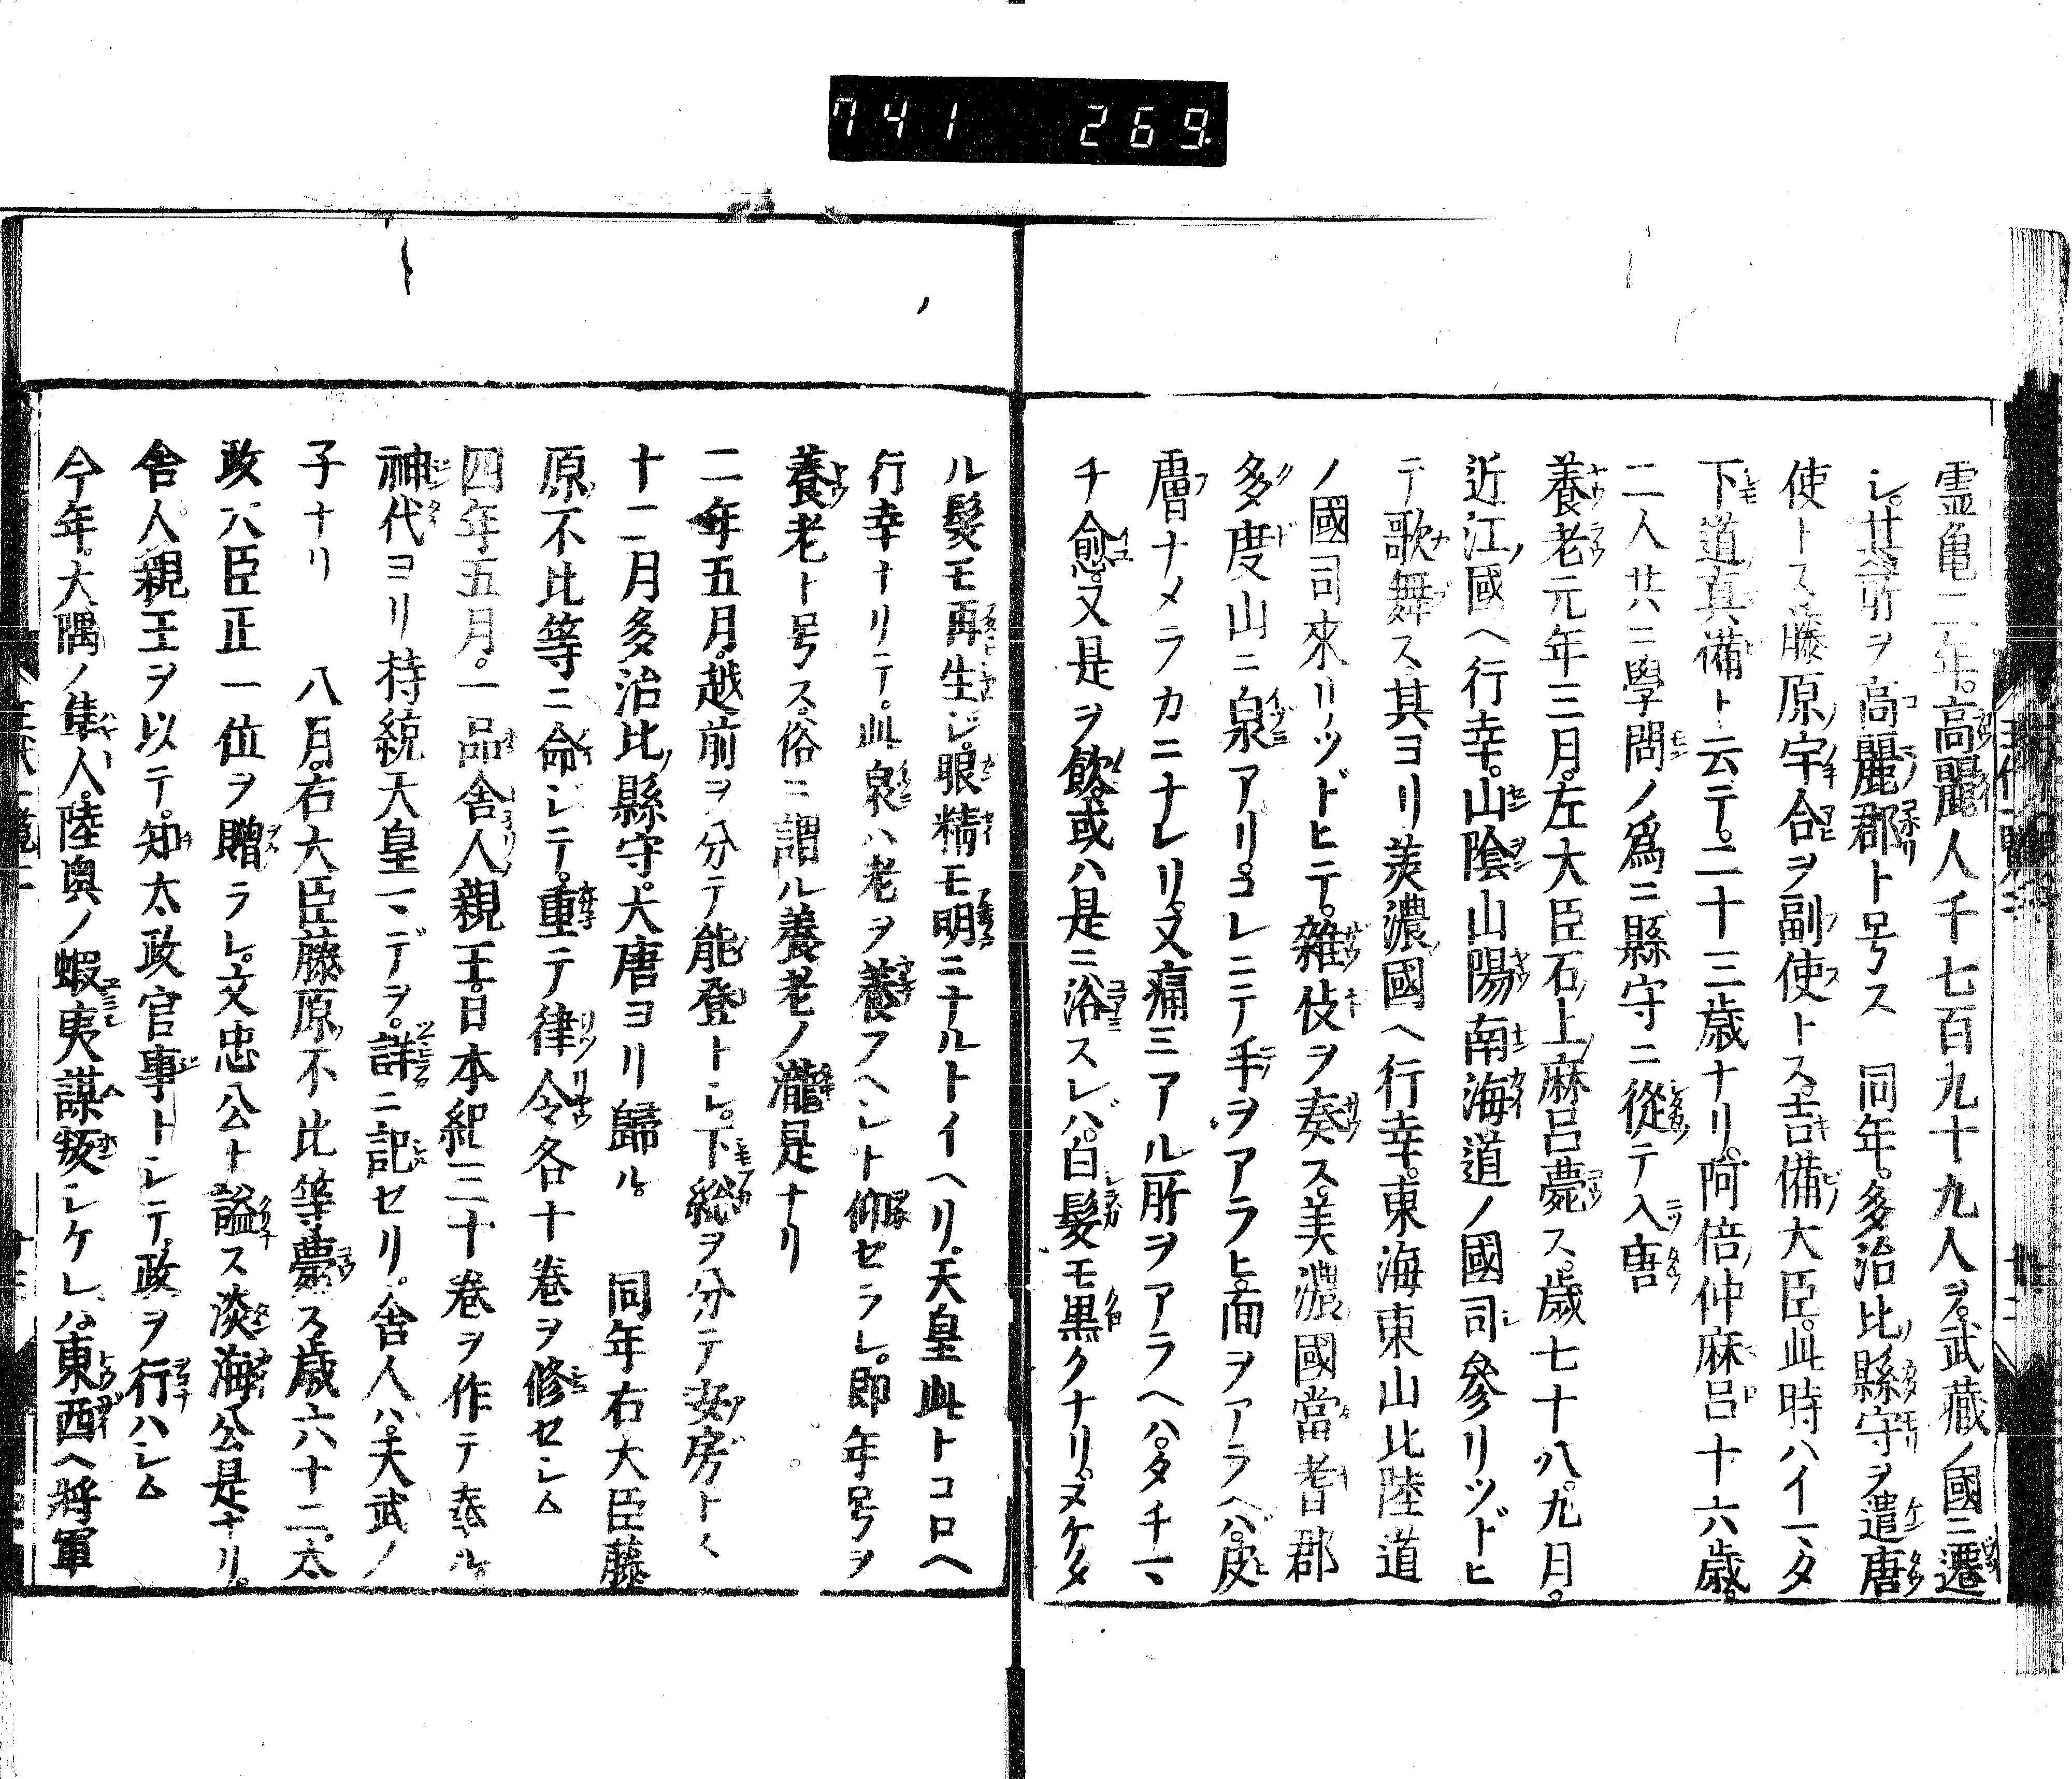 741 269.
霊亀二年。高麗人千七百九十九人ヲ。武藏ノ國ニ遷
シ。其所ヲ高麗郡ト号ス 同年。多治比縣守ヲ遣唐
使トス。藤原宇合ヲ副使トス。吉備大臣。此時ハイマタ
下道真備ト云テ。二十三歳ナリ。阿倍仲麻呂十六歳。
二人共ニ學問ノ爲ニ縣守ニ從テ入唐
養老元年三月。左大臣石上麻呂薨ス。歳七十八。九月。
近江國ヘ行幸。山陰山陽南海道ノ國司參リツドヒ
テ歌舞ス。其ヨリ美濃國ヘ行幸。東海東山北陸道
ノ國司來リツドヒテ。雜伎ヲ奏ス。美濃國當耆郡
多度山ニ泉アリ。コレニテ手ヲアラヒ。面ヲアラヘバ。皮
膚ナメラカニナレリ。又痛ミアル所ヲアラヘバ。タチマ
チ愈。又是ヲ飲。或ハ是ニ浴スレバ。白髮モ黒クナリ。ヌケタ
ル髮モ再生ジ。眼精モ明ニナルトイヘリ。天皇此トコロヘ
行幸ナリテ。此泉ハ老ヲ養フヘシト仰セラレ。即年号ヲ
養老ト号ス。俗ニ謂ル養老ノ瀧是ナリ
二年五月。越前ヲ分テ能登トシ。下総ヲ分テ安房トス
十二月多治比縣守。大唐ヨリ歸ル。 同年右大臣藤
原不比等ニ命シテ。重テ律令各十卷ヲ修セシム
四年五月。一品舎人親王。日本紀三十卷ヲ作テ奉ル。
神代ヨリ持統天皇マデヲ。詳ニ記セリ。舎人ハ。天武ノ
子ナリ 八月。右大臣藤原不比等薨ス。歳六十二。太
政大臣正一位ヲ贈ラレ。文忠公ト謚ス。淡海公是ナリ。
舎人親王ヲ以テ。知太政官事トシテ。政ヲ行ハシム
今年。大隅ノ隼人。陸奥ノ蝦夷謀叛シケレバ。東西ヘ將軍